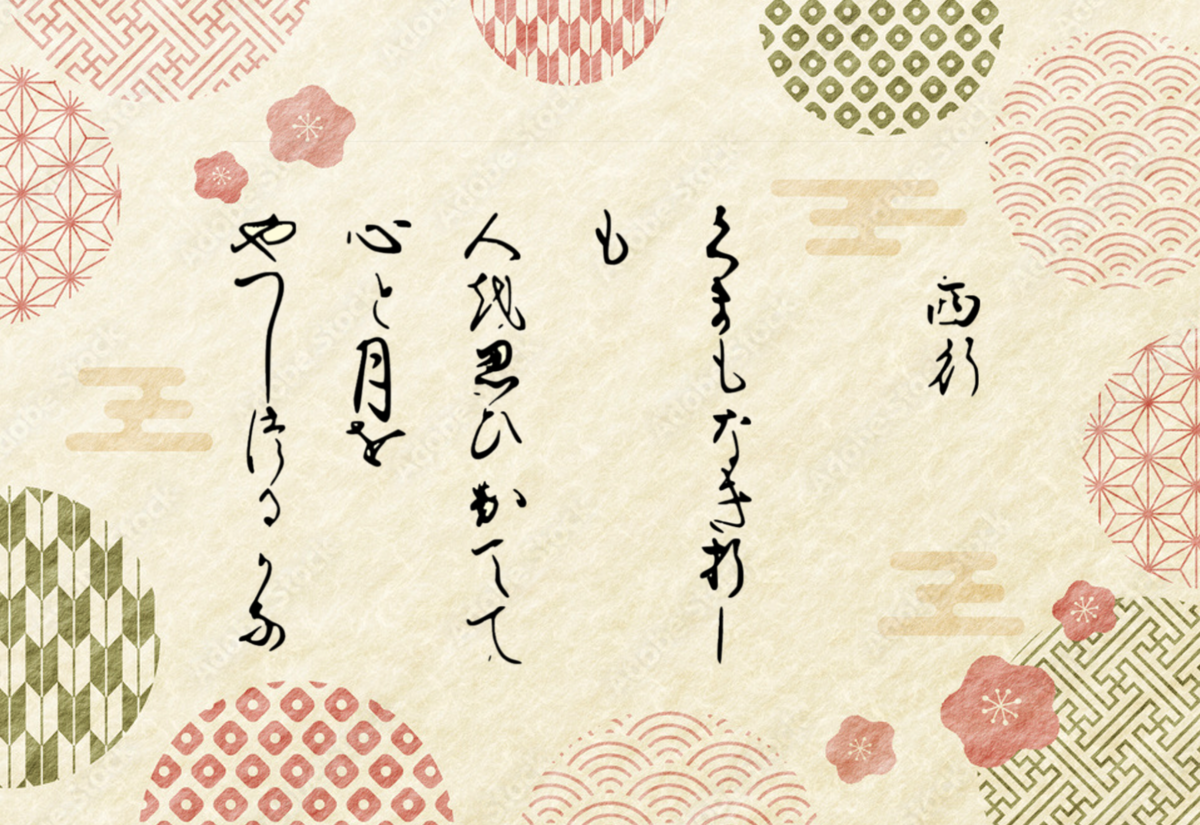 西行
くまもなき折し
も
人を思ひ出てて
心と月を
やつしつるかな
Adobe Stock